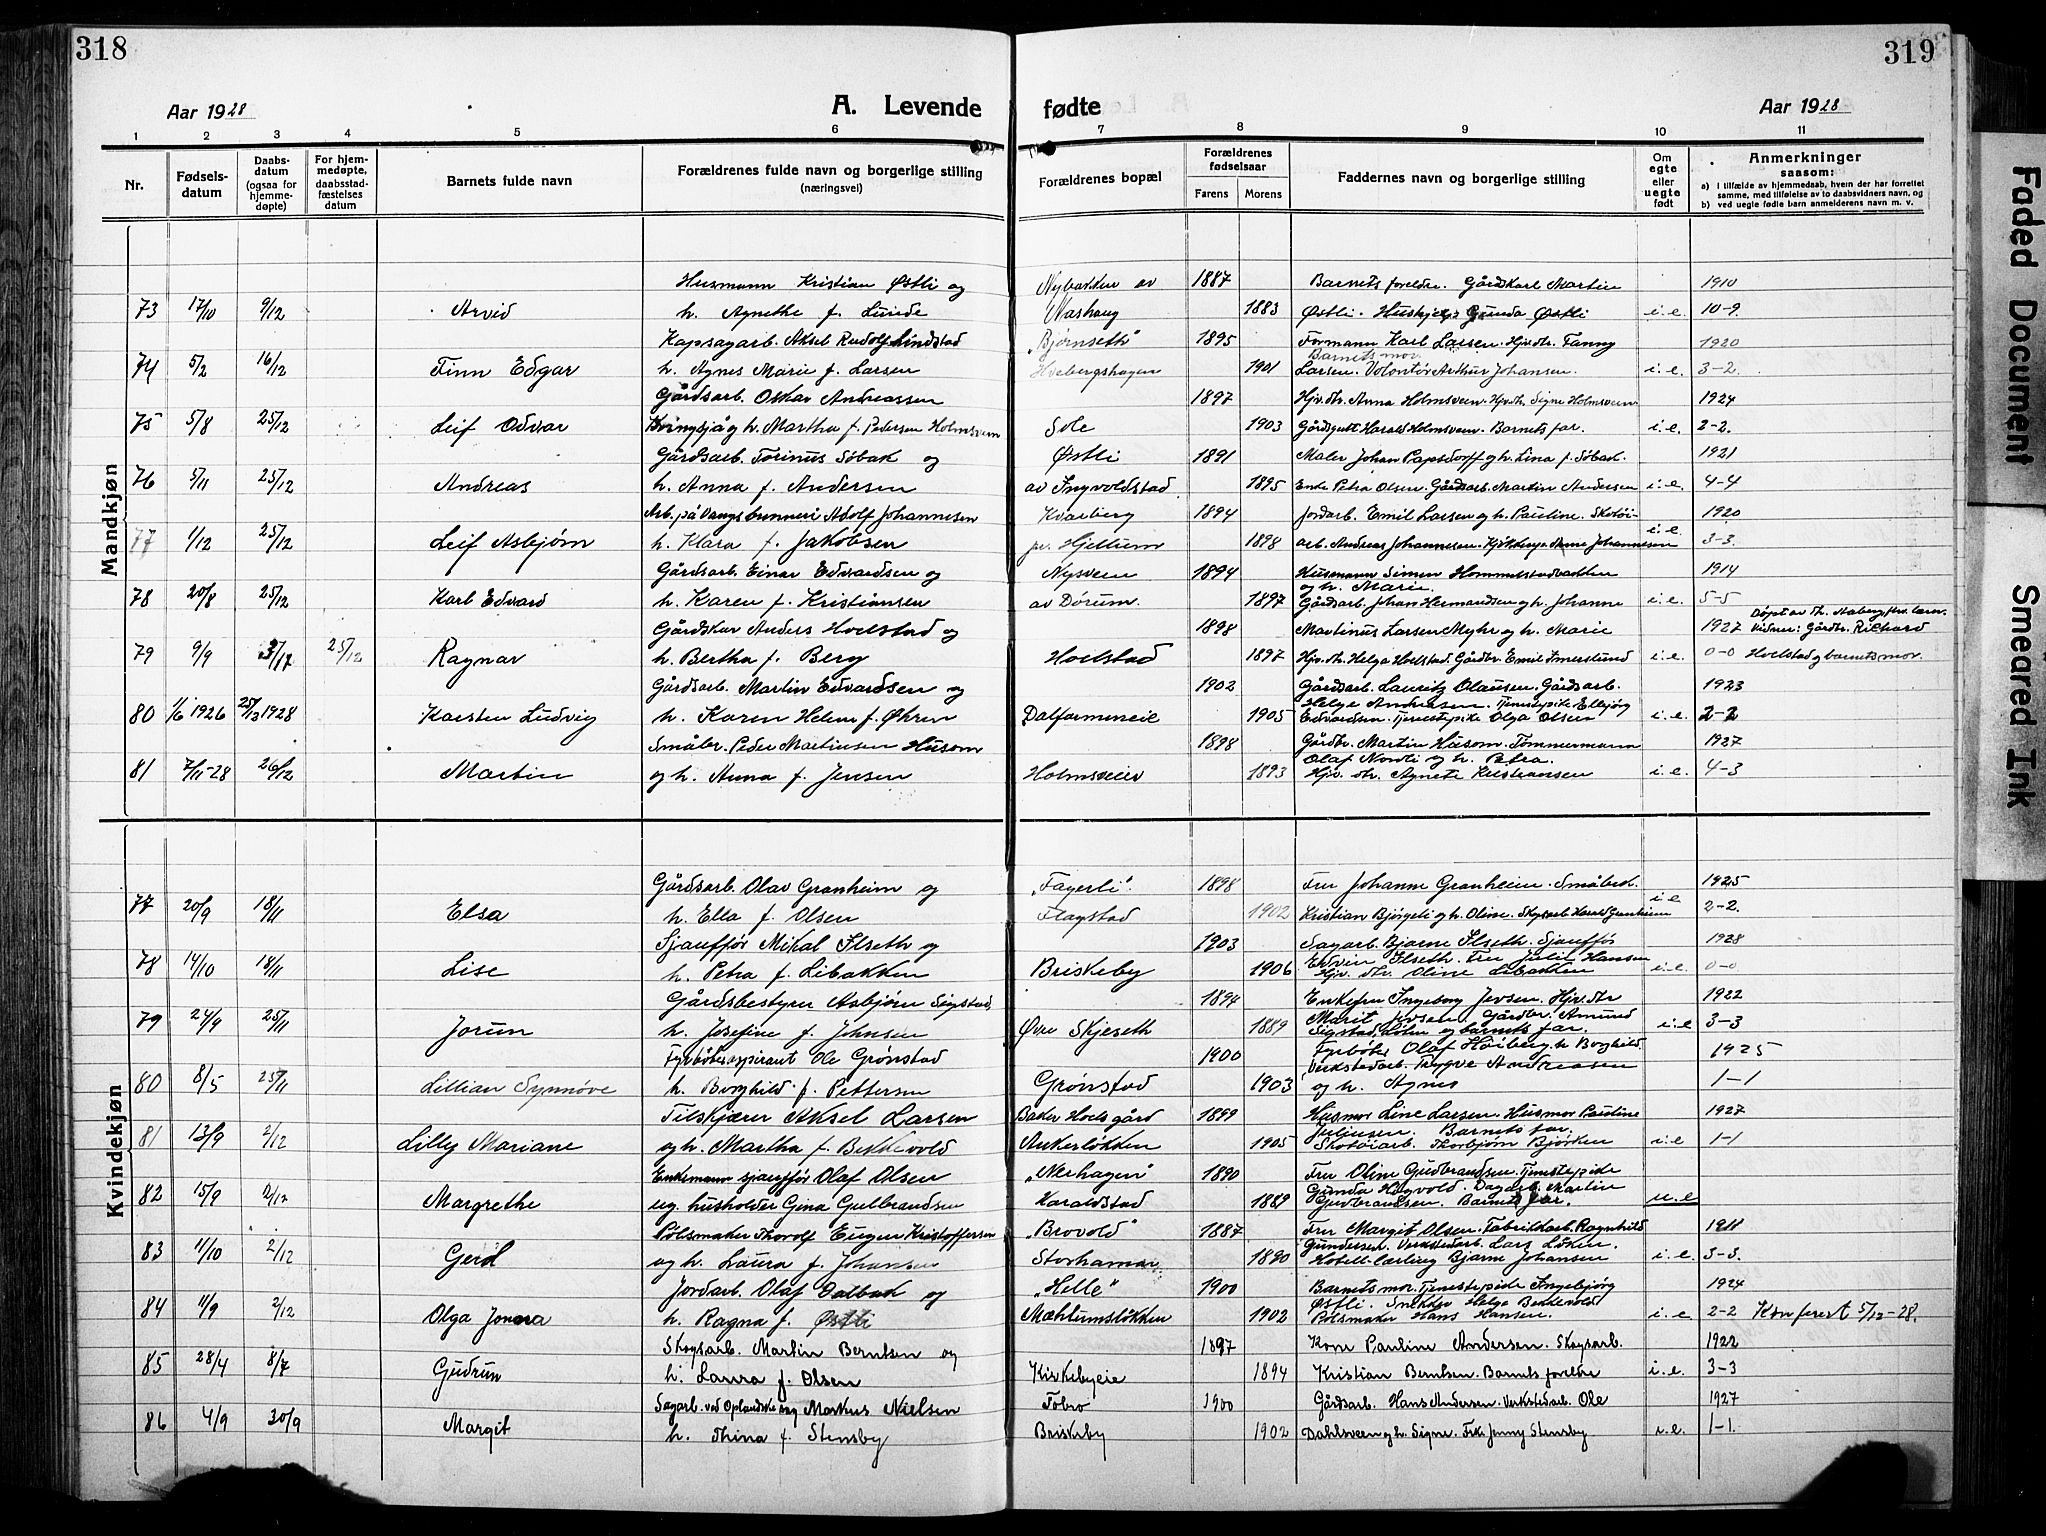 318
319
Aar 1928
A. Levende
fødte
Aar 1928
1 2 3 4 5 6 7 8 9 10 11
Nr.
Fødsels-datum
Daabs-datum (ogsaa for hjemme-døpte)
For hjem-medøpte, daabsstad-fæstelses datum
Barnets fulde navn
Forældrenes fulde navn og borgerlige stilling (næringsvei)
Forældrenes bopæl
Forældrenes fødselsaar
Farens
Morens
Faddernes navn og borgerlige stilling
Om egte eller uegte født
Anmerkninger saasom:
a) i tilfælde av hjemmedaab, hvem der har forrettet samme, med tilføielse av to daabsvidners navn, og
b) ved uegte fødte barn anmelderens navn m. v.
Mandkjøn
Husmann Kristian Østli og Nybakken av 1887 Barnets foreldre. Gårdskarl Martin 1910
73 17/10 9/12 Arvid h. Agnethe f. Lunde Nashaug 1883 Østli. Gunda Østli i.e. 10-9
Kapsagarb. Aksel Rudolf Lindstad "Bjørnseth" 1895 Formann Karl Larsen. Hjv.dtr. Fanny 1920
Barnets mor.
74 5/2 16/12 Finn Edgar h. Agnes Marie f. Larsen Hvebergshagen 1901 Larsen. Volontør Arthur Johansen. i.e. 3-2.
Gårdsarb. Oskar Andreassen 1897 Hjv.dtr. Anna Holmsveen. Hjv.dtr. Signe Holmsveen 1924
75 5/8 25/12 Leif Odvar h. Martha f. Pedersen Holmsveen Sole 1903 Gårdsgutt Harald Holmsveen. Barnets far. i.e. 2-2.
Gårdsarb. Torinus Søbak og Østli 1891 Maler Johan Papsdorff og h. Lina f. Søbak. 1921
76 5/11 25/12 Andreas h. Anna f. Andersen av Ingvoldstad 1895 Enke Petra Olsen. Gårdsarb. Martin Andersen i.e. 4-4
Arb. på Vangs brenneri Adolf Johannesen Kvarberg 1894 Jordarb. Emil Larsen og h. Pauline. Skotøi- 1920
77 1/12 25/12 Leif Asbjørn h. Klara f. Jakobsen pr. Hjellum 1898 arb. Andreas Johannesen. Anne Johannesen i.e. 3-3.
Gårdsarb. Einar Edvardsen og Nysveen 1894 Husmann Simen Hommelstadbakken 1914
og h. Marie.
78 20/8 25/12 Karl Edvard h. Karen f. Kristiansen av Dørum. 1897 Gårdsarb. Johan Hermandsen og h. Johanne i.e. 5-5
Gårdskar Anders Hoelstad og 1898 Martinus Larsen Myhr og h. Marie 1927 Vidner: Gårdbr. Richard
79 9/9 3/12 25/12 Ragnar h. Bertha f. Berg Hoelstad 1897 Hjv.dtr. Helga Hoelstad. Gårdbr. Emil Imerslund i.e. 0-0 Hoelstad og barnets mor.
Gårdsarb. Martin Edvardsen og 1902 Gårdsarb. Lauritz Olausen. Gårdsarb. 1923
Helge Andreasen. Tjenestepike Ellbjørg
80 1/6 1926 25/12 1928 Karsten Ludvig h. Karen Helene f. Øhren Dalfarmeneie 1905 Edvardsen. Tjenestepike Olga Olsen i.e. 2-2
Småbr. Peder Martinsen Husom 1898 Gårdbr. Martin Husom. Tømmermann 1927
Olaf Nordli og h. Petra.
81 7/11-28 26/12 Martin og h. Anna f. Jensen Holmsveien 1893 Hjv. dtr. Agnete Kristiansen i.e. 4-3
Kvindekjøn
Gårdsarb. Olav Granheim og "Fagerli". 1898 Fru Johanne Granheim. Småbr. 1925
77 20/9 18/11 Elsa h. Ella f. Olsen Flagstad 1902 Kristian Bjørgeli og h. Oline. Skogsarb. Harald Granheim i.e 2-2.
Sjauffør Mikal Ilseth og 1903 Sagarb. Bjarne Ilseth. Sjauffør 1928
Edvin Ilseth. Fru Julie Hansen
78 14/10 18/11 Lise h. Petra f. Libakken Briskeby 1906 Hjv. dtr. Oline Libakken i.e. 0-0
Gårdsbestyrer Asbjørn Sigstad, 1894 Enkefru Ingeborg Jevsen. Hjv.dtr 1922
Marit Jevsen. Gårdbr. Amund
79 24/9 25/11 Jorun h. Josefine f. Johnsen Øvre Skjeseth 1889 Sigstad, Løten og barnets far. i.e 3-3
Fyrbøteraspirant Ole Grønstad 1900 Fyrbøter Olaf Høiberg. h. Borghild. 1925
Verkstedarb. Trygve Andreasen
80 8/5 25/11 Lillian Synnøve h. Borghild f. Pettersen Grønstad 1903 og h. Agnes 1-1
Tilskjærer Aksel Larsen Baker Hoels gård 1899 Husmor Line Larsen. Husmor Pauline 1927
Juliussen. Barnets far.
81 13/9 2/12 Lilly Mariane og h. Martha f. Bekkevold Ankerløkken 1905 Skotøiarb. Thorbjørn Bjørken i.e 1-1
Enkemann sjauffør Olaf Olsen "Nerhagen" 1890 Fru Oline Gudbrandsen. Tjenestepike
Gunda Hagvold. Dagarb. Martin
82 15/9 2/12 Margrethe ug. husholder Gina Gulbrandsen Haraldstad 1889 Gudbrandsen. Barnets far. u.e
Pølsmaker Thorolf Eugen Kristoffersen "Brovold" 1887 Fru Margit Olsen. Fabrikkarb. Ragnhild 1911
Gundersen. Verkstedarb. Lars Løken.
83 11/10 2/12 Gerd og h. Laura f. Johansen Storhamar 1890 Hotell-lærling Bjarne Johansen i.e. 3-3.
Jordarb. Olaf Dalbak og "Helle" 1900 Barnets mor. Tjenestepike Ingebjørg 1924
Østli. Snekker Helge Bekkevold
84 11/9 2/12 Olga Jonera h. Ragna f. Østli Mæhlumsløkken 1902 Pølsmaker Hans Hansen. i.e 2-2 Konferert 5/12-28.
Skogsarb. Martin Berntsen og 1897 Kone Pauline Andersen. Skogsarb. 1922
85 28/4 8/7 Gudrun h. Laura f. Olsen Kirkebyeie 1894 Kristian Berntsen. Barnets foreldre i.e. 3-3
Sagarb. ved Oplandske sag Markus Nielsen Fobro 1900 Gårdsarb. Hans Andersen. Verkstedarb. Ole 1927
86 4/9 30/9 Margit h. Thina f. Stensby Briskeby 1902 Dahlsveen og h. Signe. Frk. Jenny Stensby i.e. 1-1.
Faded Document
Smeared Ink